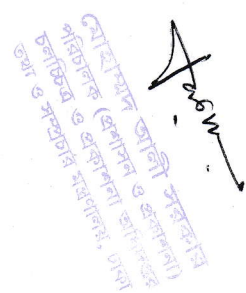 মোহাম্মদ আলী সরকার
পরিচালক (প্রশাসন ও প্রকাশনা)
চলচ্চিত্র ও প্রকাশনা অধিদপ্তর
তথ্য ও সম্প্রচার মন্ত্রণালয়, ঢাকা